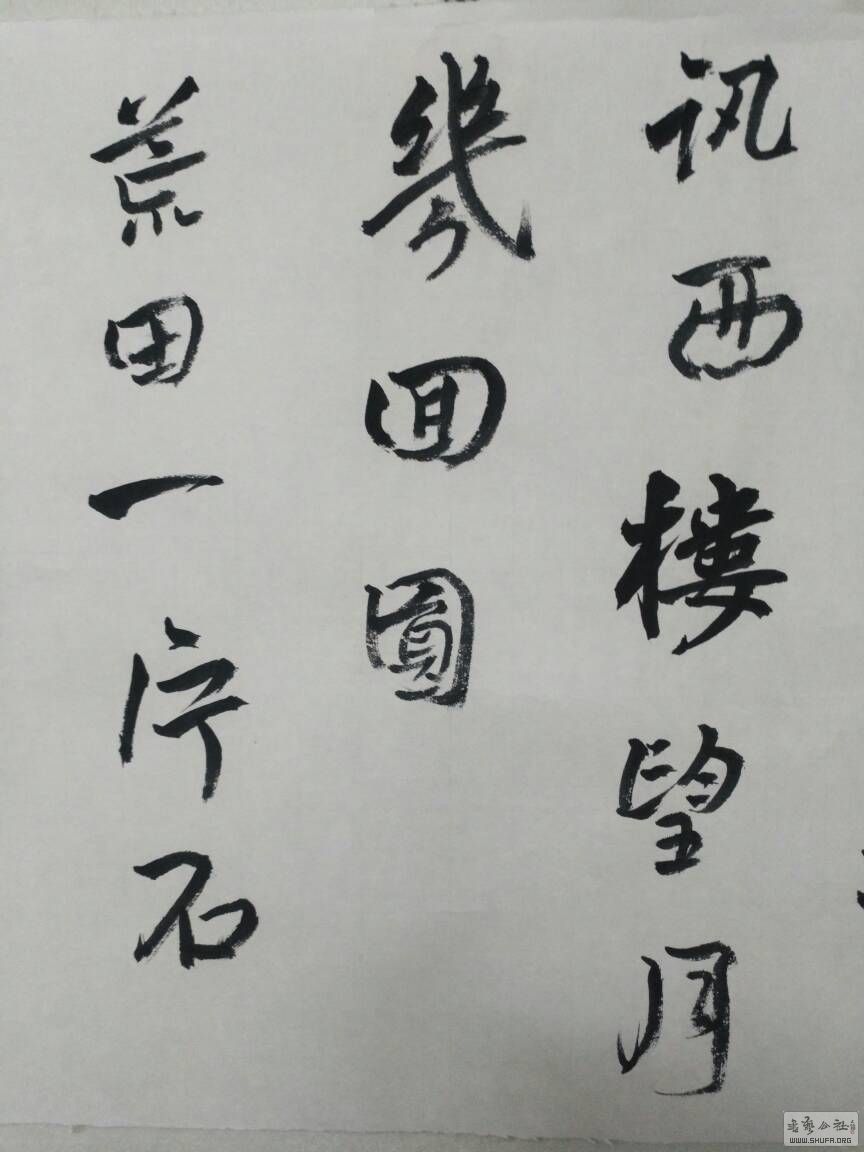 訊西樓望月
幾回圓
荒田一片石
書藝公社
WWW.SHUFA.ORG